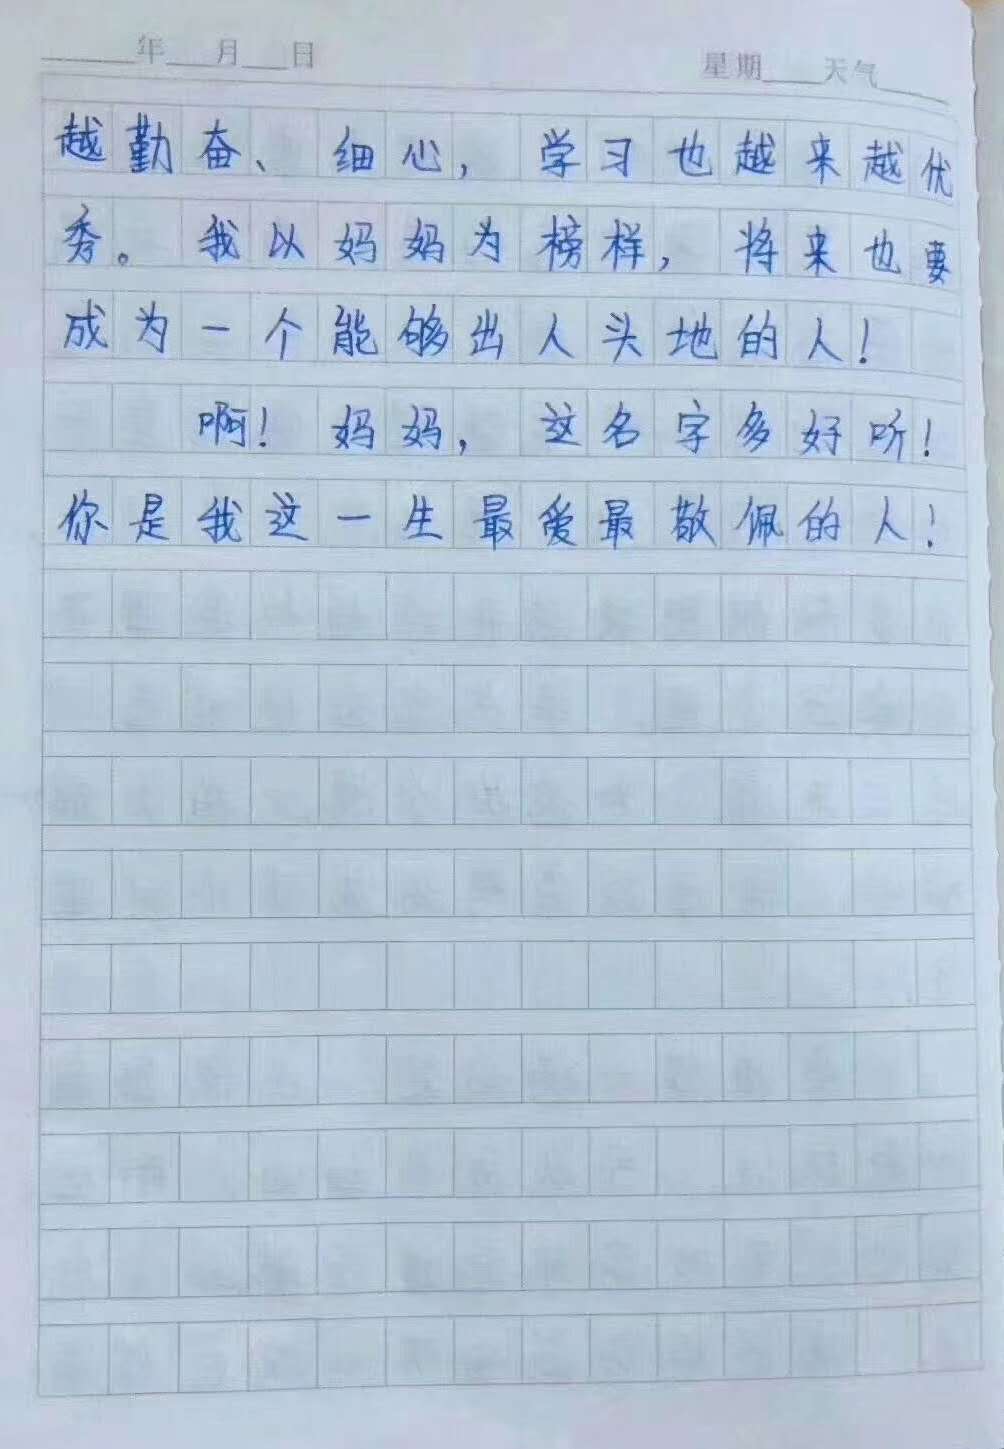 ______年___月___日 星期____天气_____
越勤奋、细心，学习也越来越优
秀。我以妈妈为榜样，将来也要
成为一个能够出人头地的人！
啊！妈妈，这名字多好听！
你是我这一生最爱最敬佩的人！